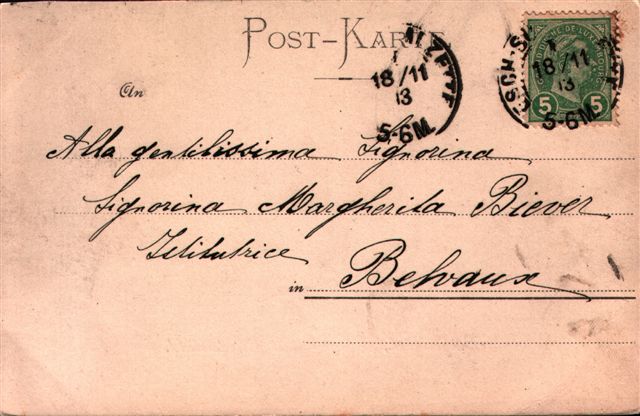 POST-KARTE
ALZETTE
18/11
13
5-6M.
ESCH-S
18/11
13
5-6M.
G DUCHÉ DE LUXEMBOURG
5 5
An
Alla gentilissima Signorina
Signorina Margherita Biever
Istitutrice
in Belvaux